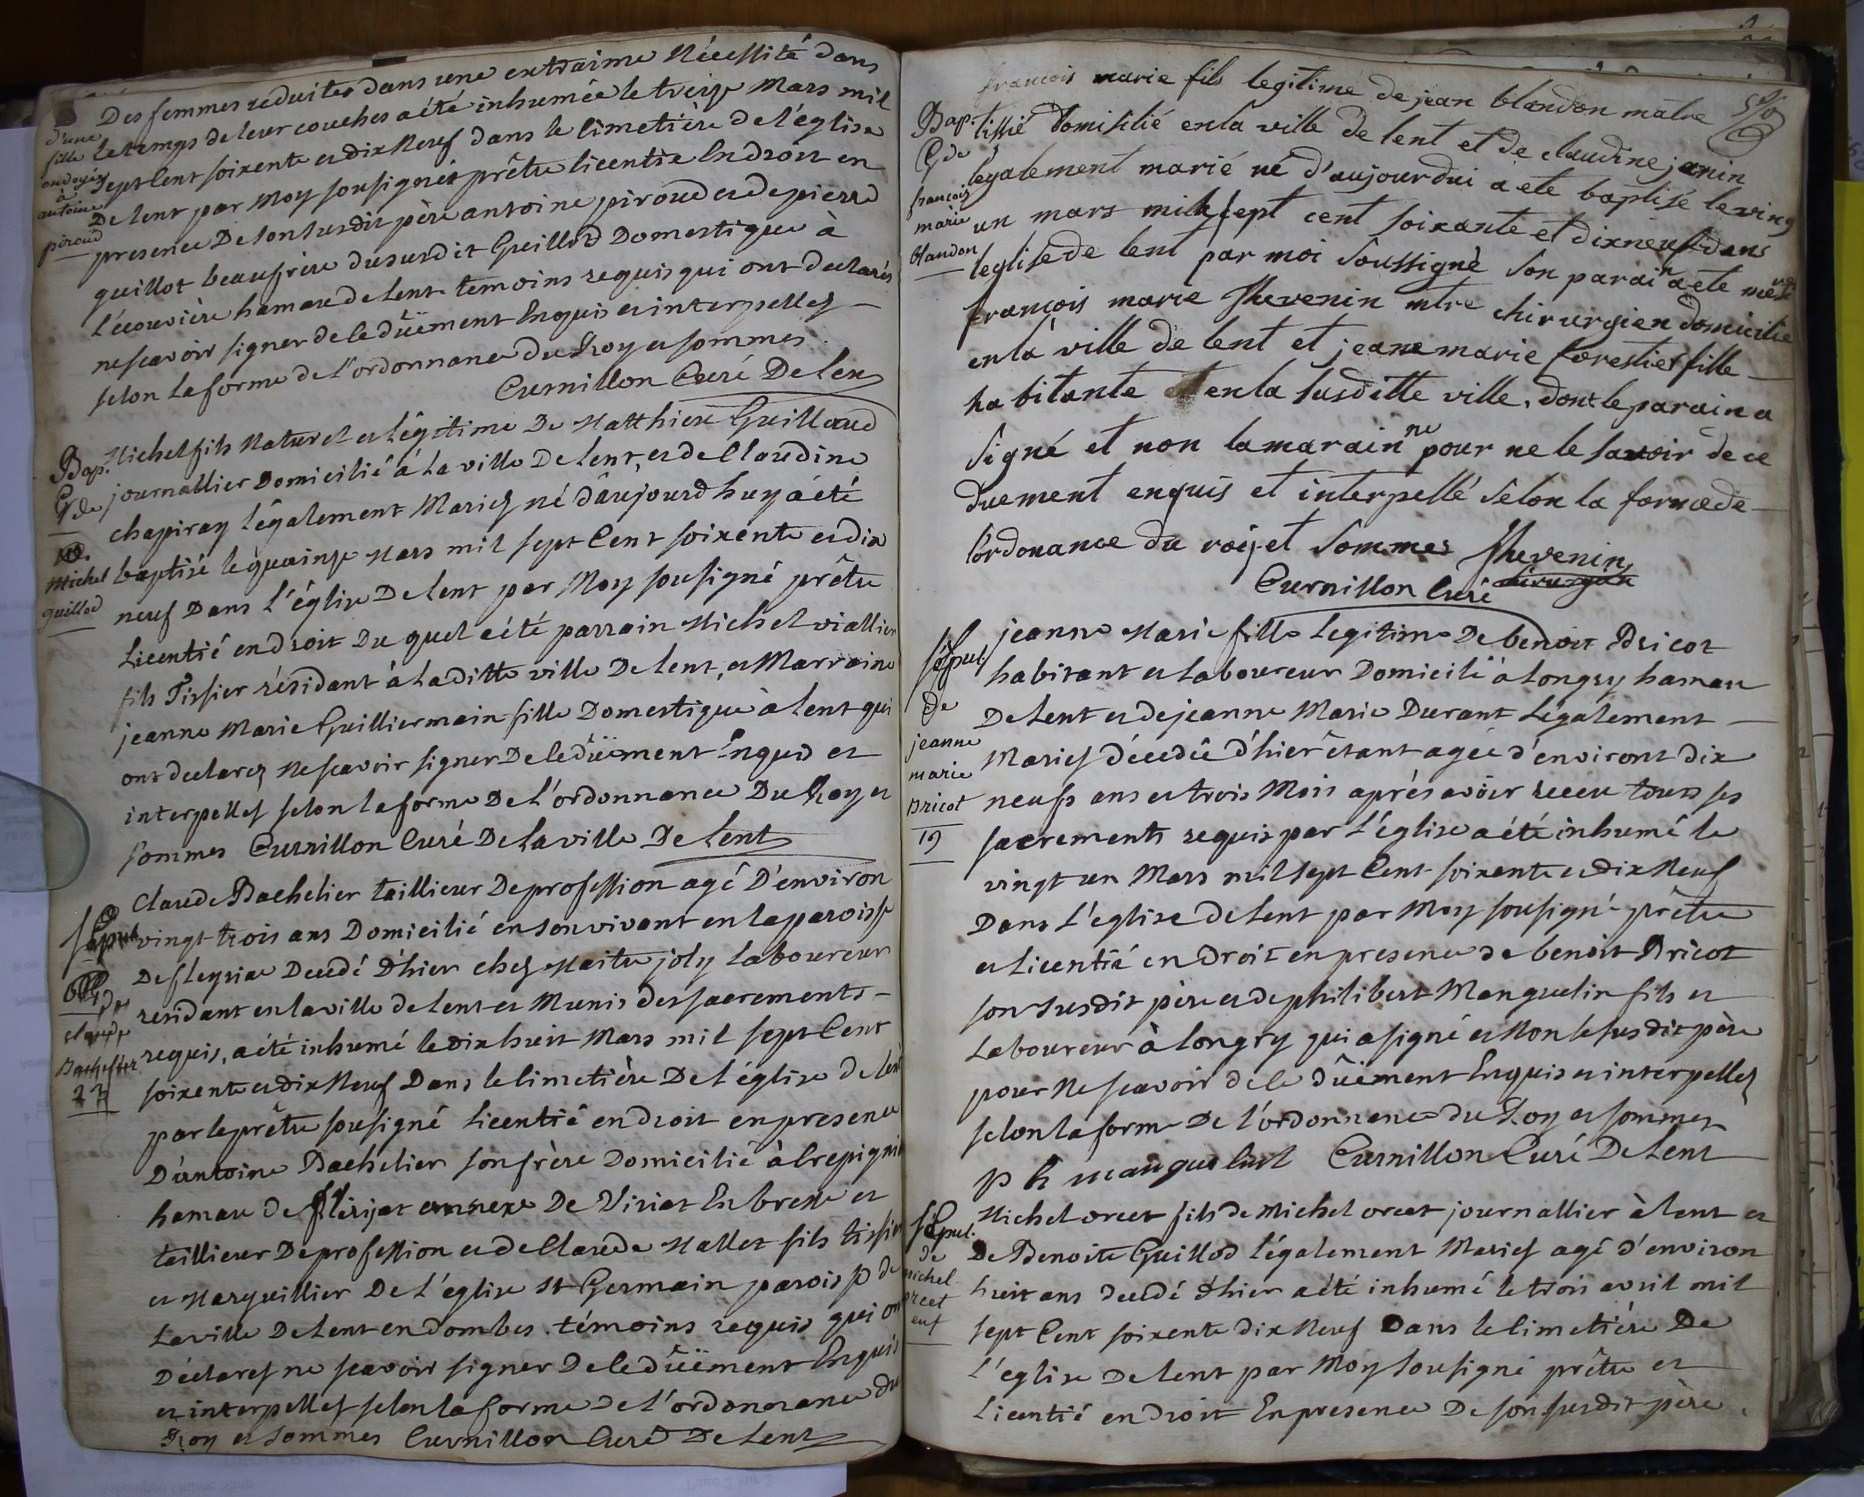 Des femmes reduites dans une extraime Nécessité dans
le temps de leur couches a été inhumée le treize Mars mil
sept Cent soixente et dix Neuf dans le Cimetière de l'église
De Lent par Moy sousigné prêtre licentié En droit en
presence De son susdit père antoine piroud et de pierre
guillot beaufrère du susdit Guillod Domestique à
L'écouvière hameau de Lent temoins requis qui ont declarés
ne scavoir signer de ce dûëment Enquis et interpellez
selon la forme de l'ordonnance du Roy et sommes
Curnillon Curé De Lent
d'une
fille
ondoyée
à
antoine
piroud
Michel fils Naturel et légitime De Matthieu Guilloud
journallier Domicilié à la ville De Lent, et de Claudine
chapiray légalement Mariez né d'aujourd huy a été
baptisé le quainze Mars mil sept Cent soixente et dix
neuf Dans l'église De Lent par Moy sousigné prêtre
Licentié en droit Du quel a été parrain Michel viallier
fils Tissier résidant à la ditte ville De Lent, et Marraine
jeanne Marie Guilliermain fille Domestique à Lent qui
ont declarez Ne scavoir signer De ce dûëment Enquis et
interpellez selon la forme De l'ordonnance Du Roy et
sommes Curnillon Curé De la ville De Lent
Bap.
de
Michel
guillod
Claude Bachelier taillieur De profession agé D'environ
vingt trois ans Domicilié en son vivant en la paroisse
De fleyriac Decedé D'hier chez Maitre joly Laboureur
residant en la ville de Lent et Munis des sacrements
requis, a été inhumé le dix huit Mars mil sept Cent
soixente et dix Neuf Dans le Cimetière De l'église de Lent
par le prêtre sousigné Licentié en droit en presence
D'antoine Bachelier son frère Domicilié à Crepignat
hameau de flerijat annexe De Viriat En bresse et
taillieur De profession et de Claude Mallet fils tissier
et Marguillier De l'église St Germain paroisse de
La ville De Lent en dombes témoins requis qui ont
Déclarez ne scavoir signer De ce dûëment Enquis
et interpellez selon la forme de l'ordonnance du
Roy et sommes Curnillon Curé De Lent
Sepul
de
claude
Bachelier
23
françois marie fils legitime de jean blandon maitre
tissié domisilié en la ville de lent et de claudine janin
legalement marié né d'aujourdui a été baptisé le ving
un mars mil sept cent soixante et dixneuf dans
leglise de lent par moi Soussigné Son parain a ete
françois marie Thevenin mtre chirurgien domicilié
en la ville de lent et jeane marie Forestier fille
habitante en la susditte ville, dont le parain a
signé et non la marainne pour ne le savoir de ce
duement enquis et interpellé selon la forme de
l'ordonance du roij et sommes Thevenin
Curnillon Curé chirurgien
Bap.
de
françois
marie
blandon
jeanne Marie fille legitime De benoit Bricot
habitant et Laboureur Domicilié à longry hameau
De Lent et de jeanne Marie Durant Légalement
Mariez décedée d'hier étant agée d'environt dix
neufs ans et trois Mois après avoir receu tous ses
sacrements requis par l'église a été inhumé le
vingt un Mars mil sept Cent soixente et dix Neuf
Dans L'eglise de Lent par Moy sousigné prêtre
et Licentié en Droit en presence de benoit Bricot
son susdit père et de philibert Manguelin fils et
Laboureur à longry qui a signé et Non le susdit père
pour Ne scavoir de ce dûëment Enquis et interpellez
selon la forme De l'ordonnance du Roy et sommes
Curnillon Curé De Lent
Sepul
de
jeanne
marie
bricot
19
Michel orcet fils de Michel orcet journallier à Lent et
De Benoite Guillod légalement Mariez agé d'environ
huit ans decedé d'hier a été inhumé le trois avril mil
sept Cent soixente dix Neuf Dans le Cimetière De
l'église De Lent par Moy sousigné prêtre et
Licentié en droit En presence De son susdit père
Sepul.
de
michel
orcet